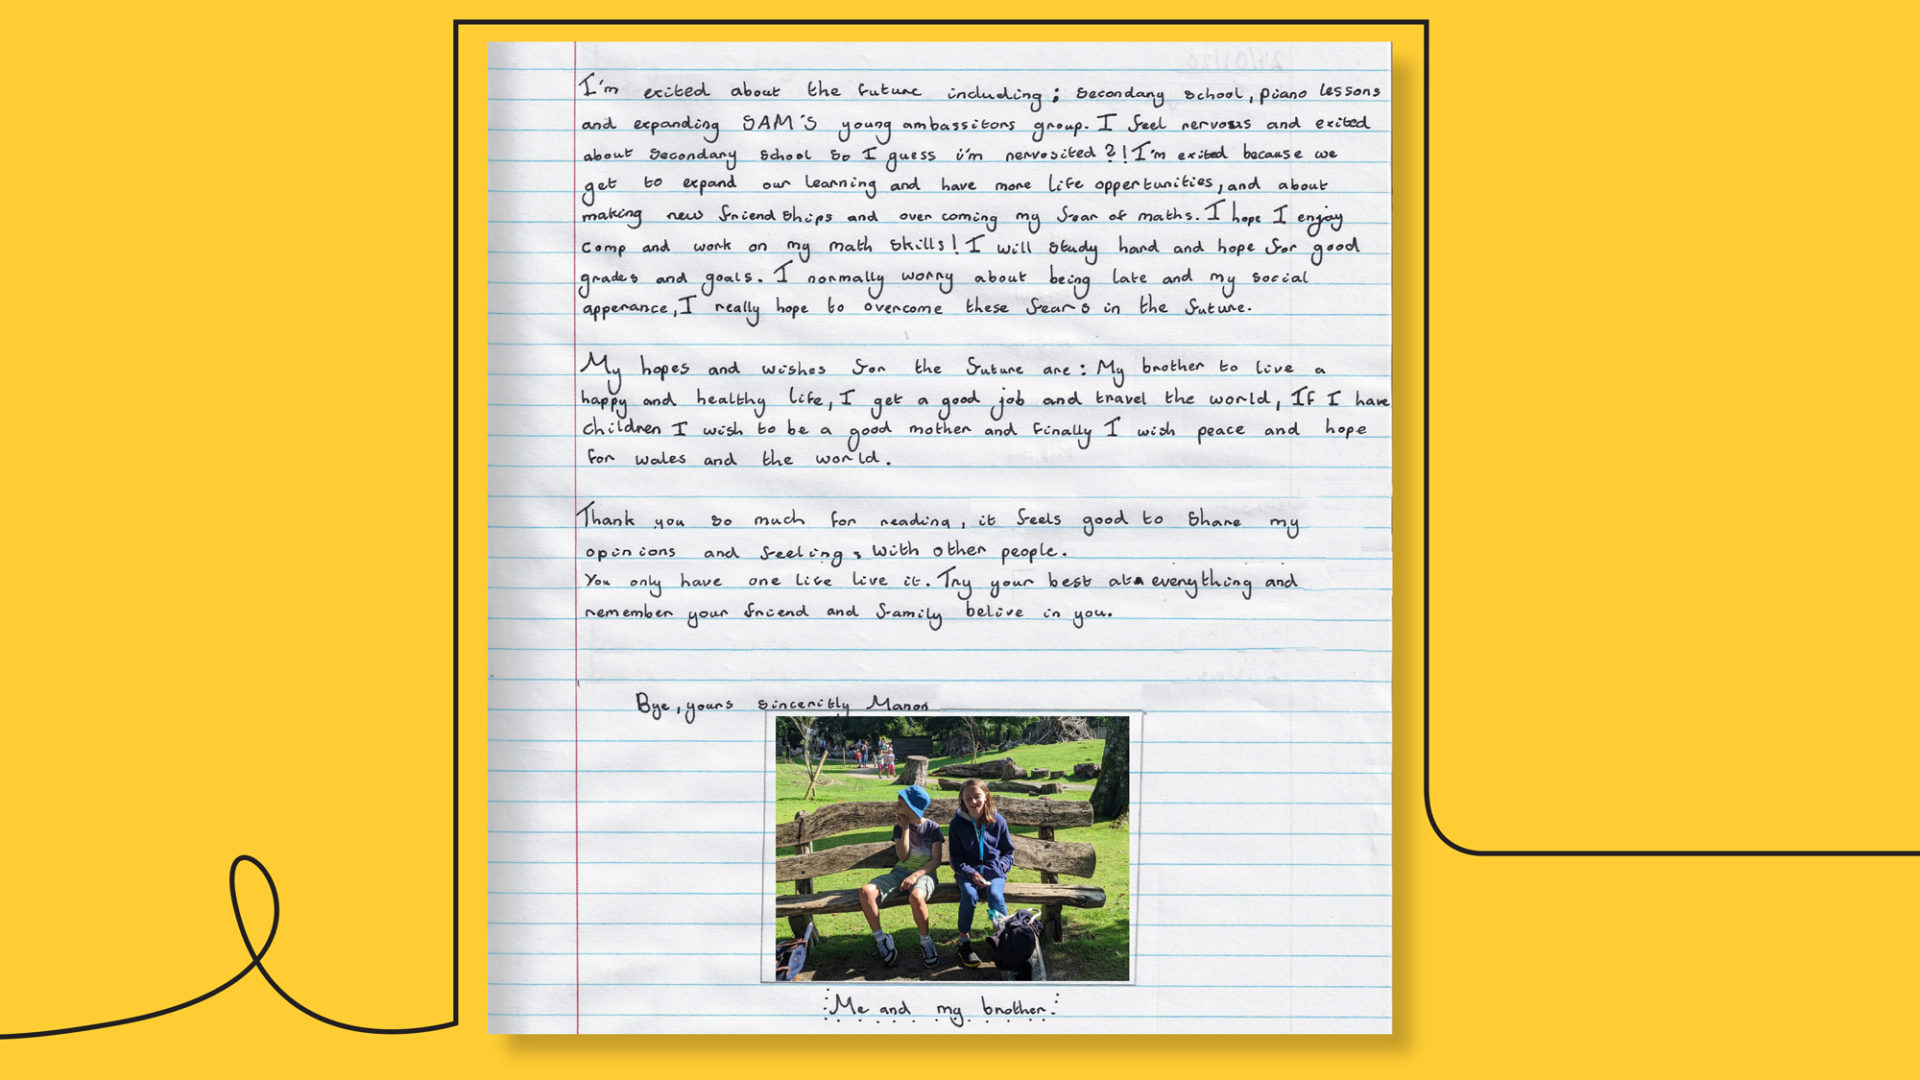 I'm exited about the future including; secondary school, piano lessons
and expanding SAM'S young ambassitors group. I feel nervous and exited
about secondary school so I guess i'm nervosited?! I'm exited because we
get to expand our learning and have more life oppertunities, and about
making new friendships and over coming my fear of maths. I hope I enjoy
comp and work on my math skills! I will study hard and hope for good
grades and goals. I normally worry about being late and my social
apperance, I really hope to overcome these fears in the future.
My hopes and wishes for the future are: My brother to live a
happy and healthy life, I get a good job and travel the world, If I have
children I wish to be a good mother and finally I wish peace and hope
for wales and the world.
Thank you so much for reading, it feels good to share my
opinions and feelings with other people.
You only have one life live it. Try your best at everything and
remember your friend and family belive in you.
Bye, yours sinceritly Manon
Me and my brother.